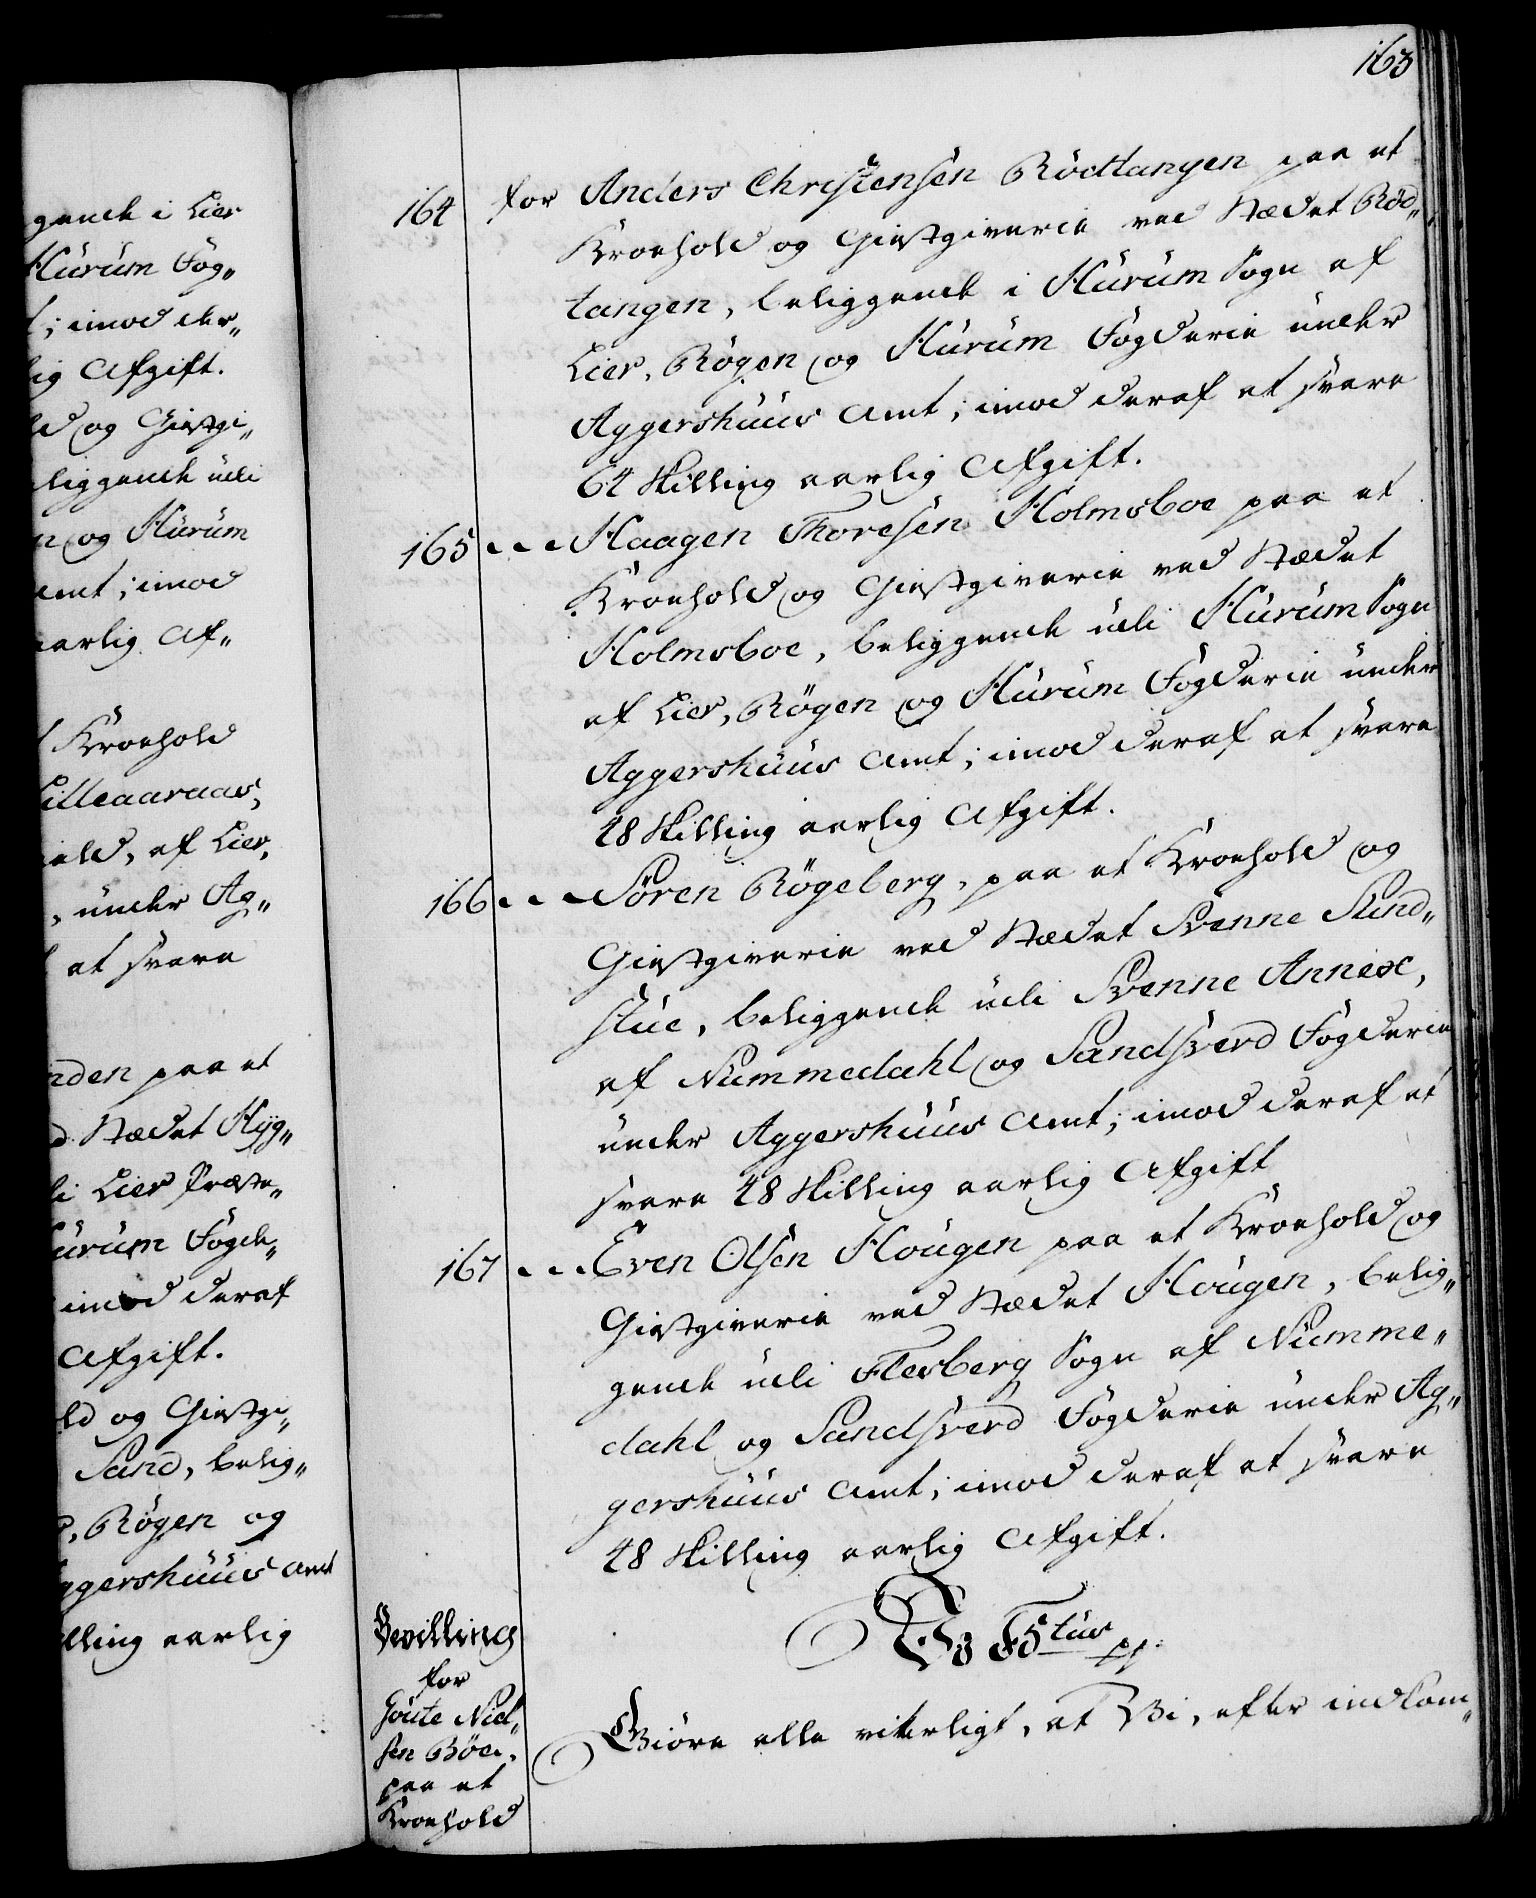 gende i Lier
Hurum Fog„
; imod der„
lig Afgift.
og Giestgi„
liggende udi
og Hurum
Amt; imod
aarlig Af„
Kroehold
Litleaaraas,
af Lier,
, under Ag„
at svare
nden paa et
Stædet Hyg„
Lier Præste„
Hurum Fogde„
imod deraf
Afgift.
og Giestgi„
Sand, belig„
, Røgen og
Aggershuus Amt
illing aarlig
163
164 for Anders Christensen Rödtangen paa et
Kroehold og Giestgiverie ved Stædet Röd„
tangen, beliggende i Hurum Sogn af
Lier, Rögen og Hurum Fogderie under
Aggershuus Amt; imod deraf at svare
64 Skilling aarlig Afgift.
165 - - - Haagen Thoresen Holmsboe paa et
Kroehold og Giestgiverie ved Stædet
Holmsboe, beliggende udi Hurum Sogn
af Lier, Rögen og Hurum Fogderie under
Aggershuus Amt; imod deraf at svare
48 Skilling aarlig Afgift.
166 - - - Sören Rögeberg, paa et Kroehold og
Giestgiverie ved Stædet Svenne Skind„
stue, beliggende udi Svenne Annex,
af Nummedahl og Sandsverd Fogderie
under Aggershuus Amt; imod deraf at
svare 48 Skilling aarlig Afgift
167 - - - Even Olsen Hougen paa et Kroehold og
Giestgiverie ved Stædet Hougen, belig„
gende udi Flesberg Sogn af Numme„
dahl og Sandsverd Fogderie under Ag„
gershuus Amt; imod deraf at svare
48 Skilling aarlig Afgift.
Bevilling
for
Goute Niel„
sen Böe,
paa et
Kroehold
Giöre alle vitterligt, at Vi, efter indkom„